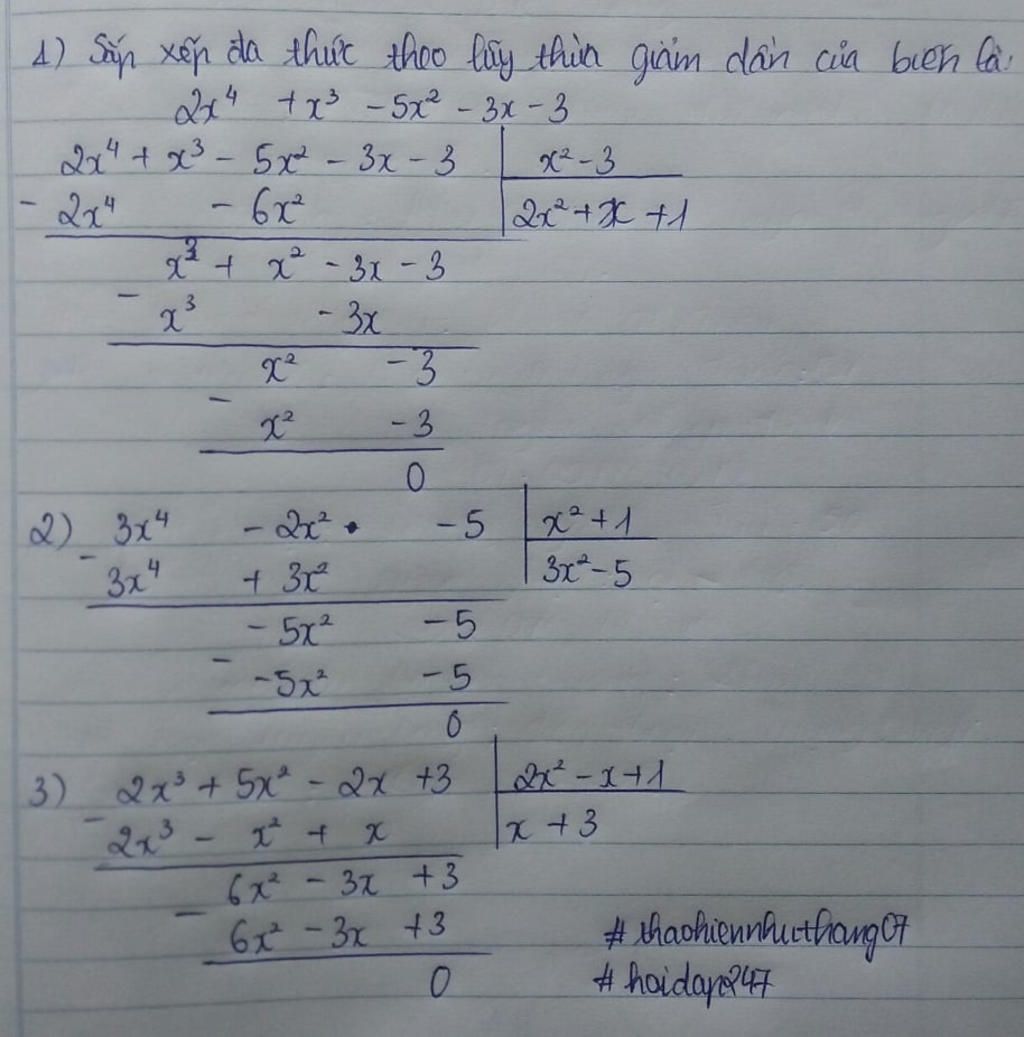 1) Sắp xếp đa thức theo lũy thừa giảm dần của biến là:
2x⁴ + x³ - 5x² - 3x - 3
2x⁴ + x³ - 5x² - 3x - 3 | x² - 3
- 2x⁴ - 6x² | 2x² + x + 1
x³ + x² - 3x - 3
- x³ - 3x
x² - 3
- x² - 3
0
2) 3x⁴ - 2x² - 5 | x² + 1
- 3x⁴ + 3x² | 3x² - 5
- 5x² - 5
- -5x² - 5
0
3) 2x³ + 5x² - 2x + 3 | 2x² - x + 1
- 2x³ - x² + x | x + 3
6x² - 3x + 3
- 6x² - 3x + 3
0
# thaohiennhuthang07
# hoidap247